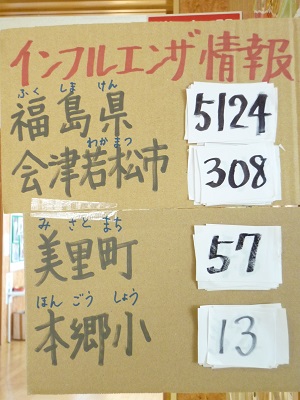 インフルエンザ情報
ふく しま けん
福島県 5124
わかまつ
会津若松市 308
み さと まち
美里町 57
ほん ごう しょう
本郷小 13